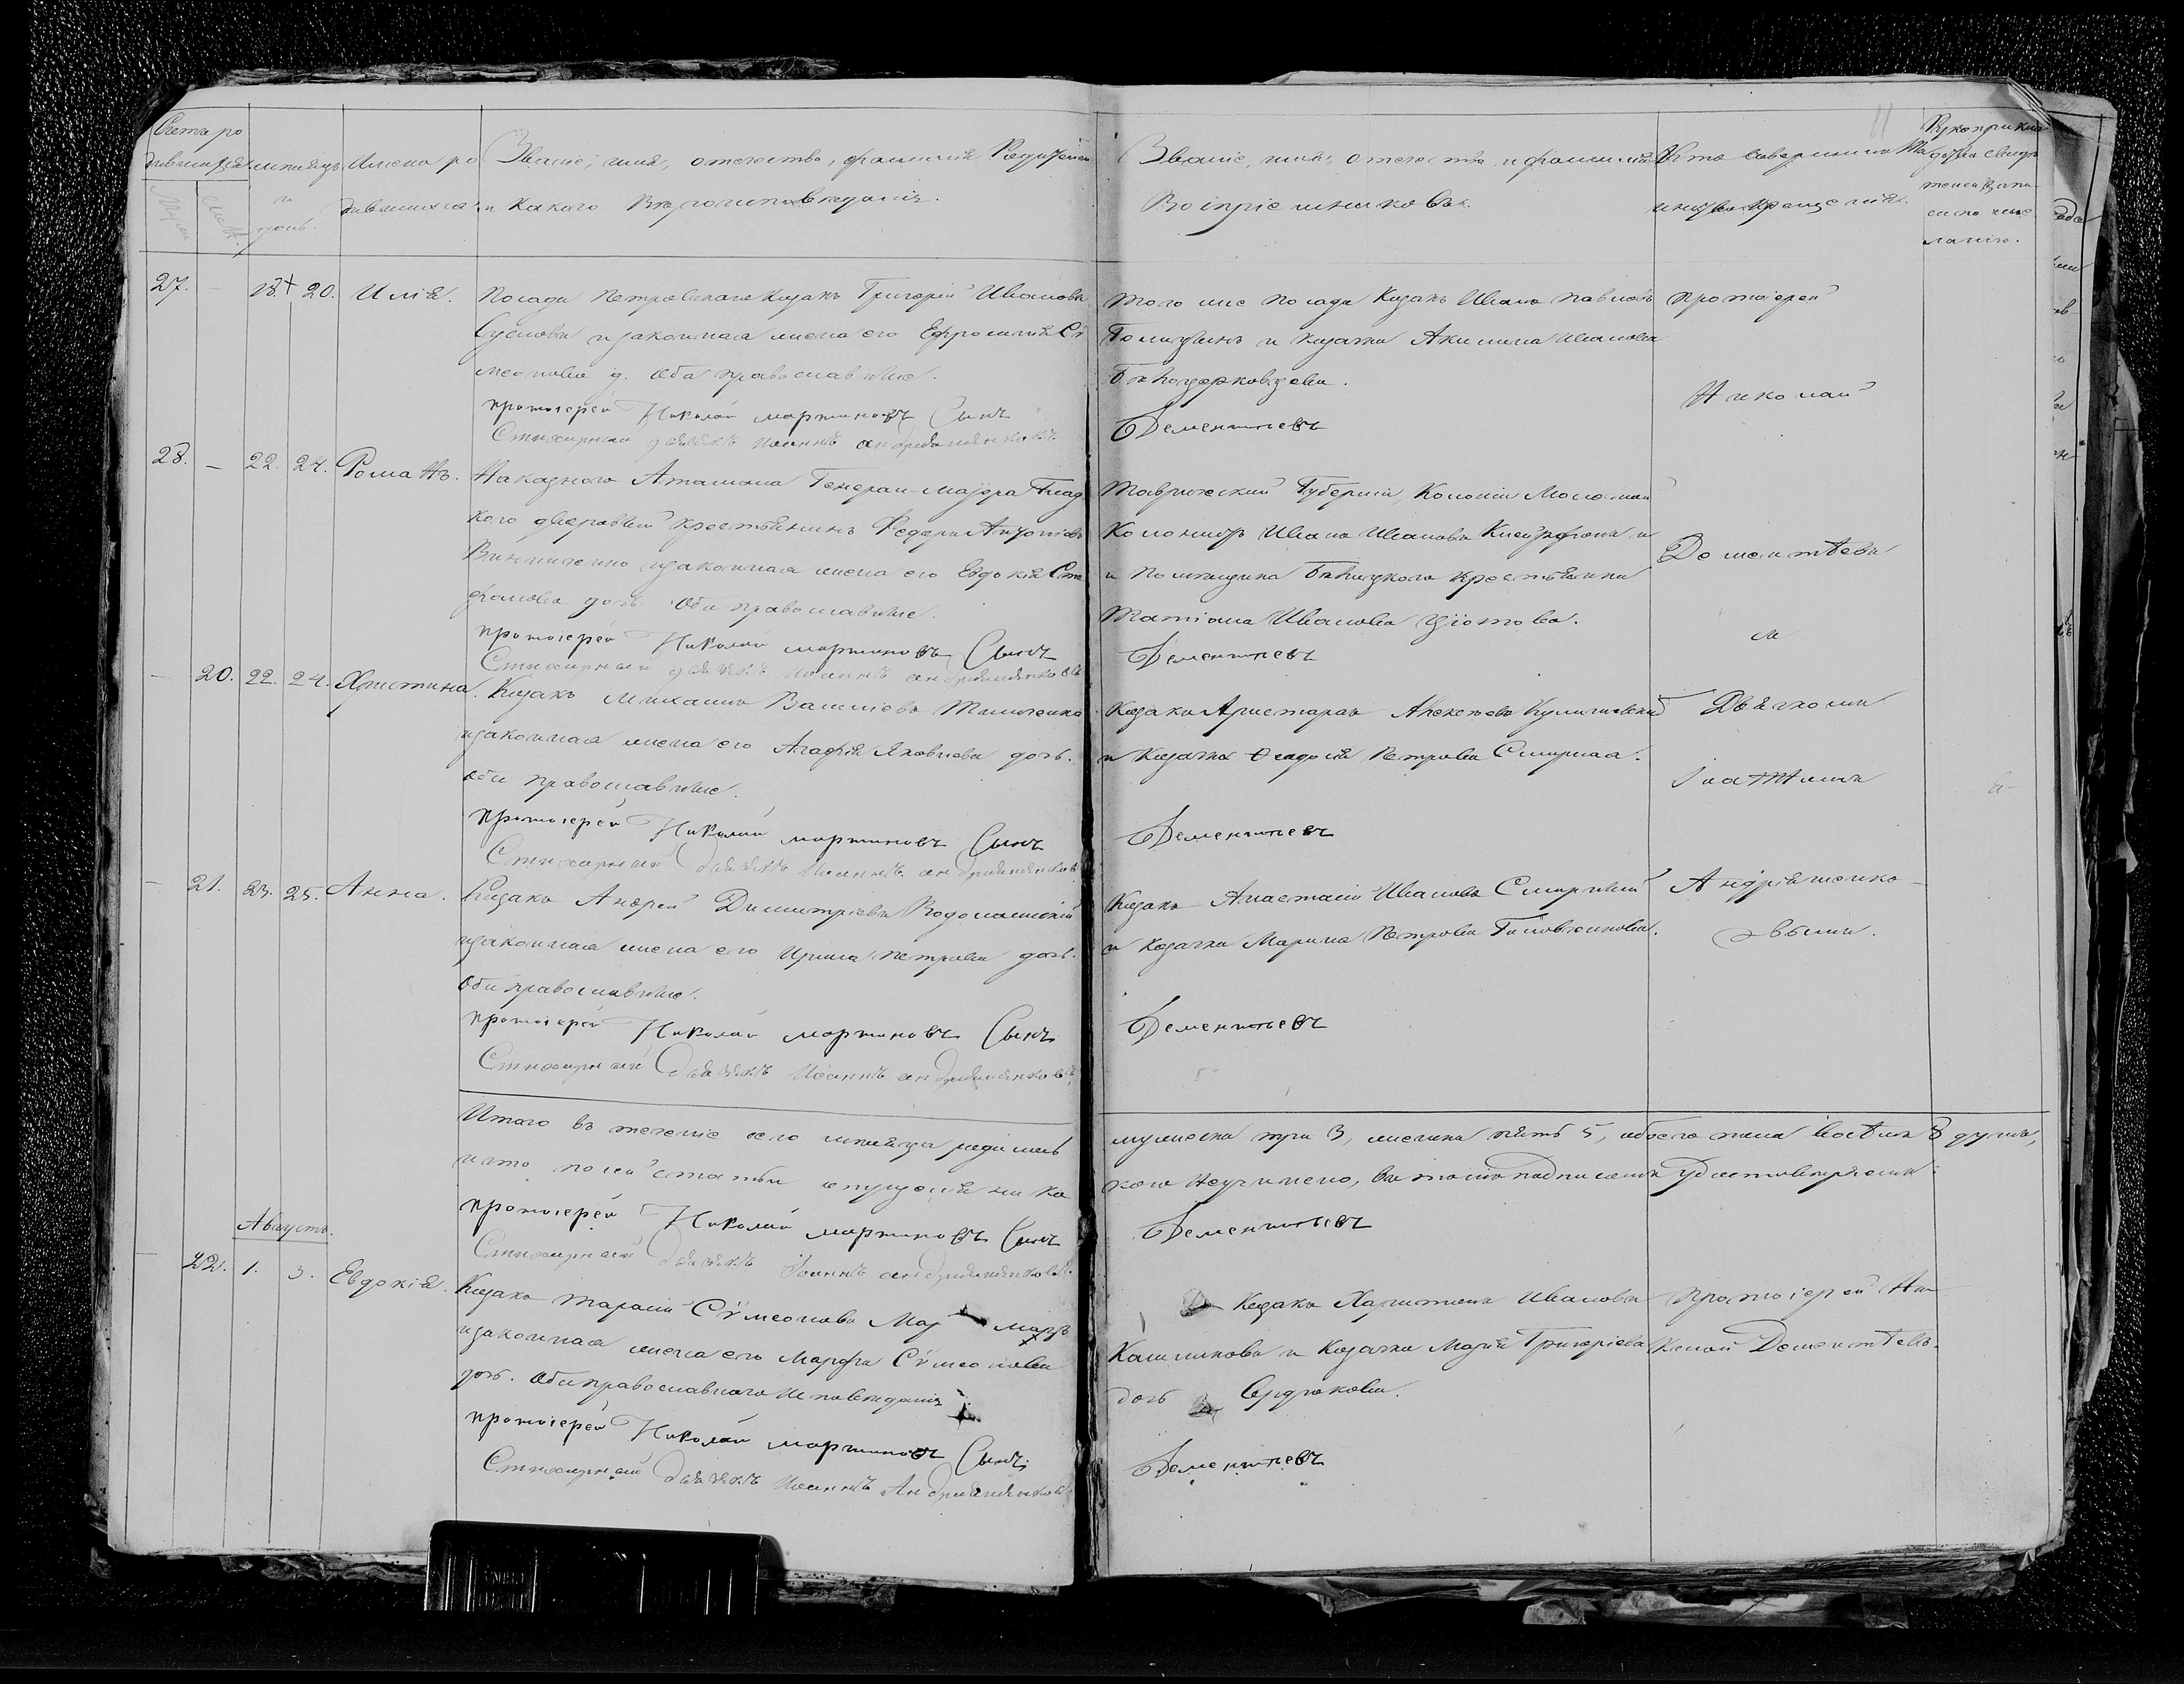 Счетъ ро
дившихся
Муж.
Жен.
мѣсяцъ
и
день.
Имена ро
дившихся
Званіе, имя, отечество, фамилія Родителей
и какого Вѣроисповѣданія.
Званіе, имя, отечество и фамилія
Воспріемниковъ.
Кто совершилъ Та
инство крещенія.
Рукоприкла
дство свидѣ
телей запи
си по же
ланію.
27. — 18. 20. Илія.
Посада Петровскаго Козакъ Григорій Ивановъ
Сусловъ и законная жена его Ефросинія Си
меонова д. Оба православные.
протоіерей Николай мартиновъ Сынъ
Стихарный дьячекъ Иоаннъ андріяшенковъ
Того же Посада Козакъ Иванъ Павловъ
и Козачка Акилина Иванова
Бѣлоцерковцева.
Дементьевъ
28. — 22. 24. Романъ.
Наказного Атамана Генералъ-Маіора Глад
кого дворовый крестьянинъ Федоръ Антоніевъ
Винниченко и законная жена его Евдокія Сте
фанова дочь. Оба православные.
протоіерей Николай мартиновъ Сынъ
Стихарный дьячекъ Иоаннъ андріяшенковъ
Таврической Губерніи, Колоніи
Колонистъ Иванъ Ивановъ
и помѣщика крестьянка
Татіана Иванова
Дементьевъ
— 20. 22. 24. Христина.
Козакъ Михаилъ Василіевъ
и законная жена его Агафія Яковлева дочь.
Оба православные.
протоіерей Николай мартиновъ Сынъ
Стихарный дьячекъ Иоаннъ андріяшенковъ
Козакъ Аристархъ Алексѣевъ
и Козачка Ѳеодосія Петрова Смирная.
Дементьевъ
— 21. 23. 25. Анна.
Козакъ Андрей Димитріевъ
и законная жена его Ирина Петрова дочь.
Оба православные.
протоіерей Николай мартиновъ Сынъ
Стихарный дьячекъ Иоаннъ андріяшенковъ
Козакъ Анастасій Ивановъ Смирный
и Козачка Марина Петрова
Дементьевъ
Протоіерей
Николай
Дементьевъ
съ
Дьячкомъ
Іоанномъ
Андріяшенко-
вымъ.
Итого въ теченіе сего мѣсяца родилось мужеска три 3, женска пять 5, обоего пола восемь 8 душъ,
и что по сей статьи опущенія ни ка кого неучинено, въ томъ подписомъ удостовѣряемъ:
протоіерей Николай мартиновъ Сынъ Дементьевъ
Стихарный дьячекъ Іоаннъ андріяшенковъ
Августъ.
— 22. 1. 3. Евдокія.
Козакъ Тарасій Сѵмеоновъ
и законная жена его Марфа Сѵмеонова
дочь. Оба православнаго Исповѣданія
протоіерей Николай мартиновъ Сынъ
Стихарный дьячекъ Иоаннъ Андріяшенковъ
Козакъ Харитонъ Ивановъ
Калининовъ и Козачка Марія Григоріева
дочь Сердюкова.
Дементьевъ
Протоіерей Ни
колай Дементьевъ.